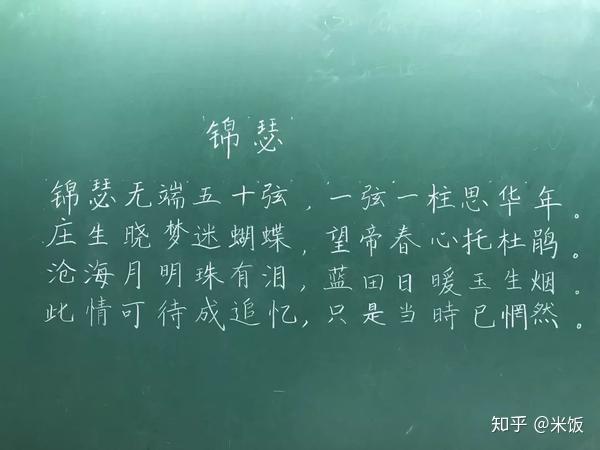 锦瑟
锦瑟无端五十弦，一弦一柱思华年。
庄生晓梦迷蝴蝶，望帝春心托杜鹃。
沧海月明珠有泪，蓝田日暖玉生烟。
此情可待成追忆，只是当時已惘然。
知乎 @米饭